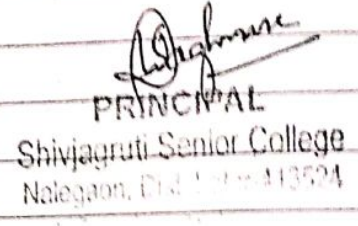 PRINCIPAL
Shivjagruti Senior College
Nalegaon, Dist. Latur 413524